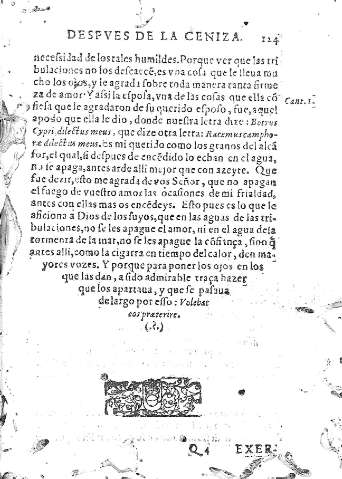 DESPVES DE LA CENIZA. 124
necessidad de los tales humildes. Porque ver que las tri
bulaciones no los descaecē, es vna cosa que le lleua mu
cho los ojos, y le agrada sobre toda manera tanta firme
za de amor. Y assi la esposa, vna de las cosas que ella cō
fiessa que le agradaron de su querido esposo, fue, aquel
Cant. 1.
apodo que ella le dio, donde nuestra letra dize: Botrus
Cypri dilectus meus, que dize otra letra: Racemus campho-
ræ dilectus meus. es mi querido como los granos del alcā
for, el qual, si despues de encēdido lo echan en el agua,
no se apaga, antes arde alli mejor que con azeyte. Que
fue dezir, esto me agrada de vos Señor, que no apagan
el fuego de vuestro amor las ocasiones de mi frialdad,
antes con ellas mas os encēdeys. Esto pues es lo que le
aficiona a Dios de los suyos, que en las aguas de las tri-
bulaciones, no se les apague el amor, ni en el agua de la
tormenta de la mar, no se les apague la cōfiança, sino q̄
antes alli, como la cigarra en tiempo del calor, den ma
yores vozes. Y porque para poner los ojos en los
que las dan, a sido admirable traça hazer
que los apartaua, y que se passaua
de largo por esso: Volebat
eos præterire.
(.?.)
Q 4 EXER-